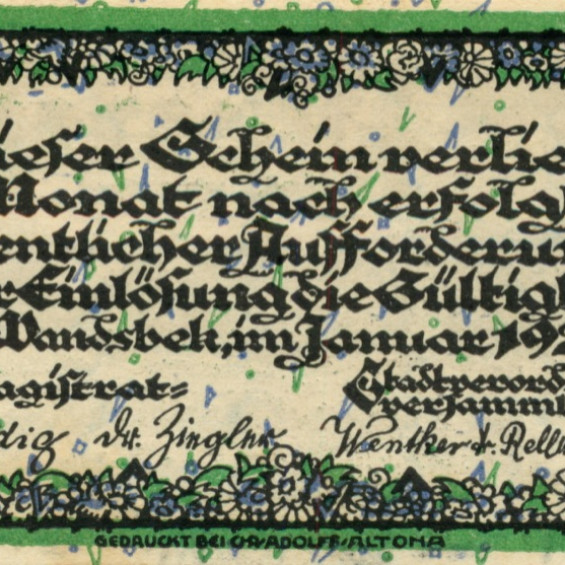 ieser Schein verlie
Monat nach erfolg
entlicher Aufforderu
r Einlösung die Gültig
Wandsbek, im Januar 192
agistrat=
Stadtverord
versamml
dig Dr. Ziegler Wentker Dr. Rell
GEDRUCKT BEI CHR. ADOLFF-ALTONA